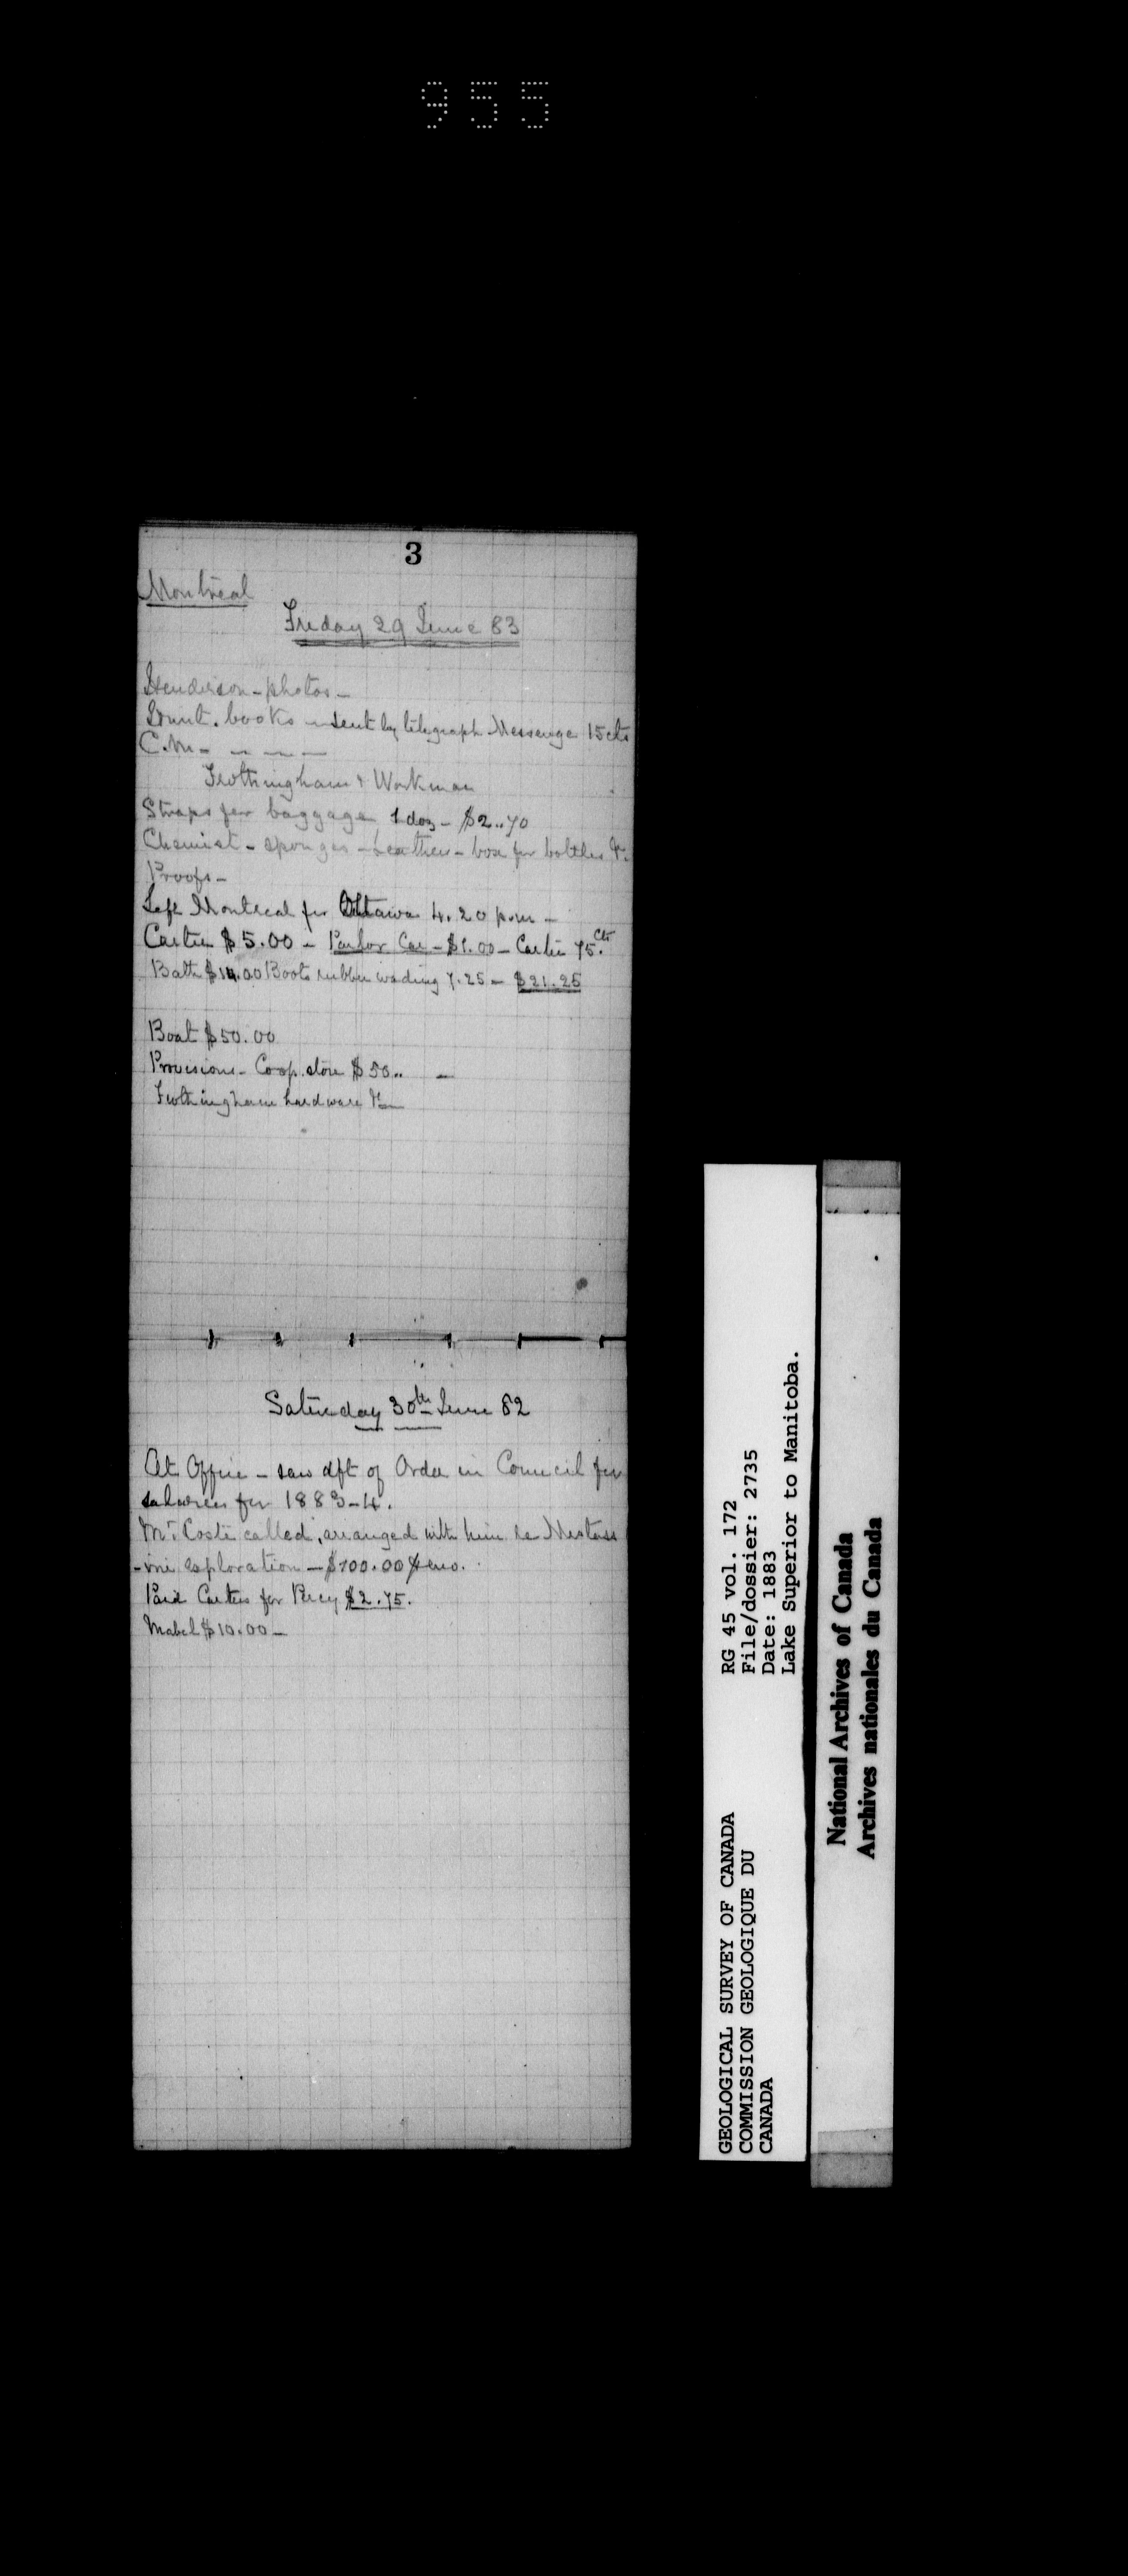 955
3
Montreal
Friday 29 June 83
Henderson - photos -
books - sent by telegraph Messenge 15cts
C.M - - - -
Frothingham & Workman
Straps for baggage 1 doz - $2..70
Chemist - sponges - Leather - box for bottles &c.
Proofs -
Left Montreal for Ottawa 4.20 p.m -
Carter $5.00 - Parlor Car - $1.00 - Carter 75 cts.
Bath $14.00 Boots rubber wading 7.25 - $21.25
Boat $50.00
Provisions - Coop. store $50.. -
Frothingham hardware &c
Saturday 30th June 82
At Office - saw dft of Order in Council for
salaries for 1883-4.
Mr Coste called, arranged with him re Mistass
-ini exploration - $100.00
Paid Carter for Percy $2.75.
Mabel $10.00 -
GEOLOGICAL SURVEY OF CANADA
COMMISSION GEOLOGIQUE DU
CANADA
RG 45 vol. 172
File/dossier: 2735
Date: 1883
Lake Superior to Manitoba.
National Archives of Canada
Archives nationales du Canada